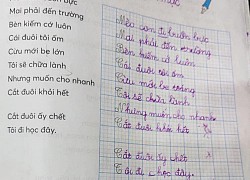 Mai phải đến trường
Bèn kiếm cớ luôn
Cái đuôi tôi ốm
Cừu mới be lớn
Tôi sẽ chữa lành
Nhưng muốn cho nhanh
Cắt đuôi khỏi hết
Cắt đuôi ấy chết
Tôi đi học đây.
Mèo con đi buồn bực
Mai phải đến trường
Bèn kiếm cớ luôn
Cái đuôi tôi ốm
Cừu mới be toáng
Tôi sẽ chữa lành
Nhưng muốn cho nhanh
Cắt đuôi khỏi hết
Cắt đuôi ấy chết
Tôi đi học đây.